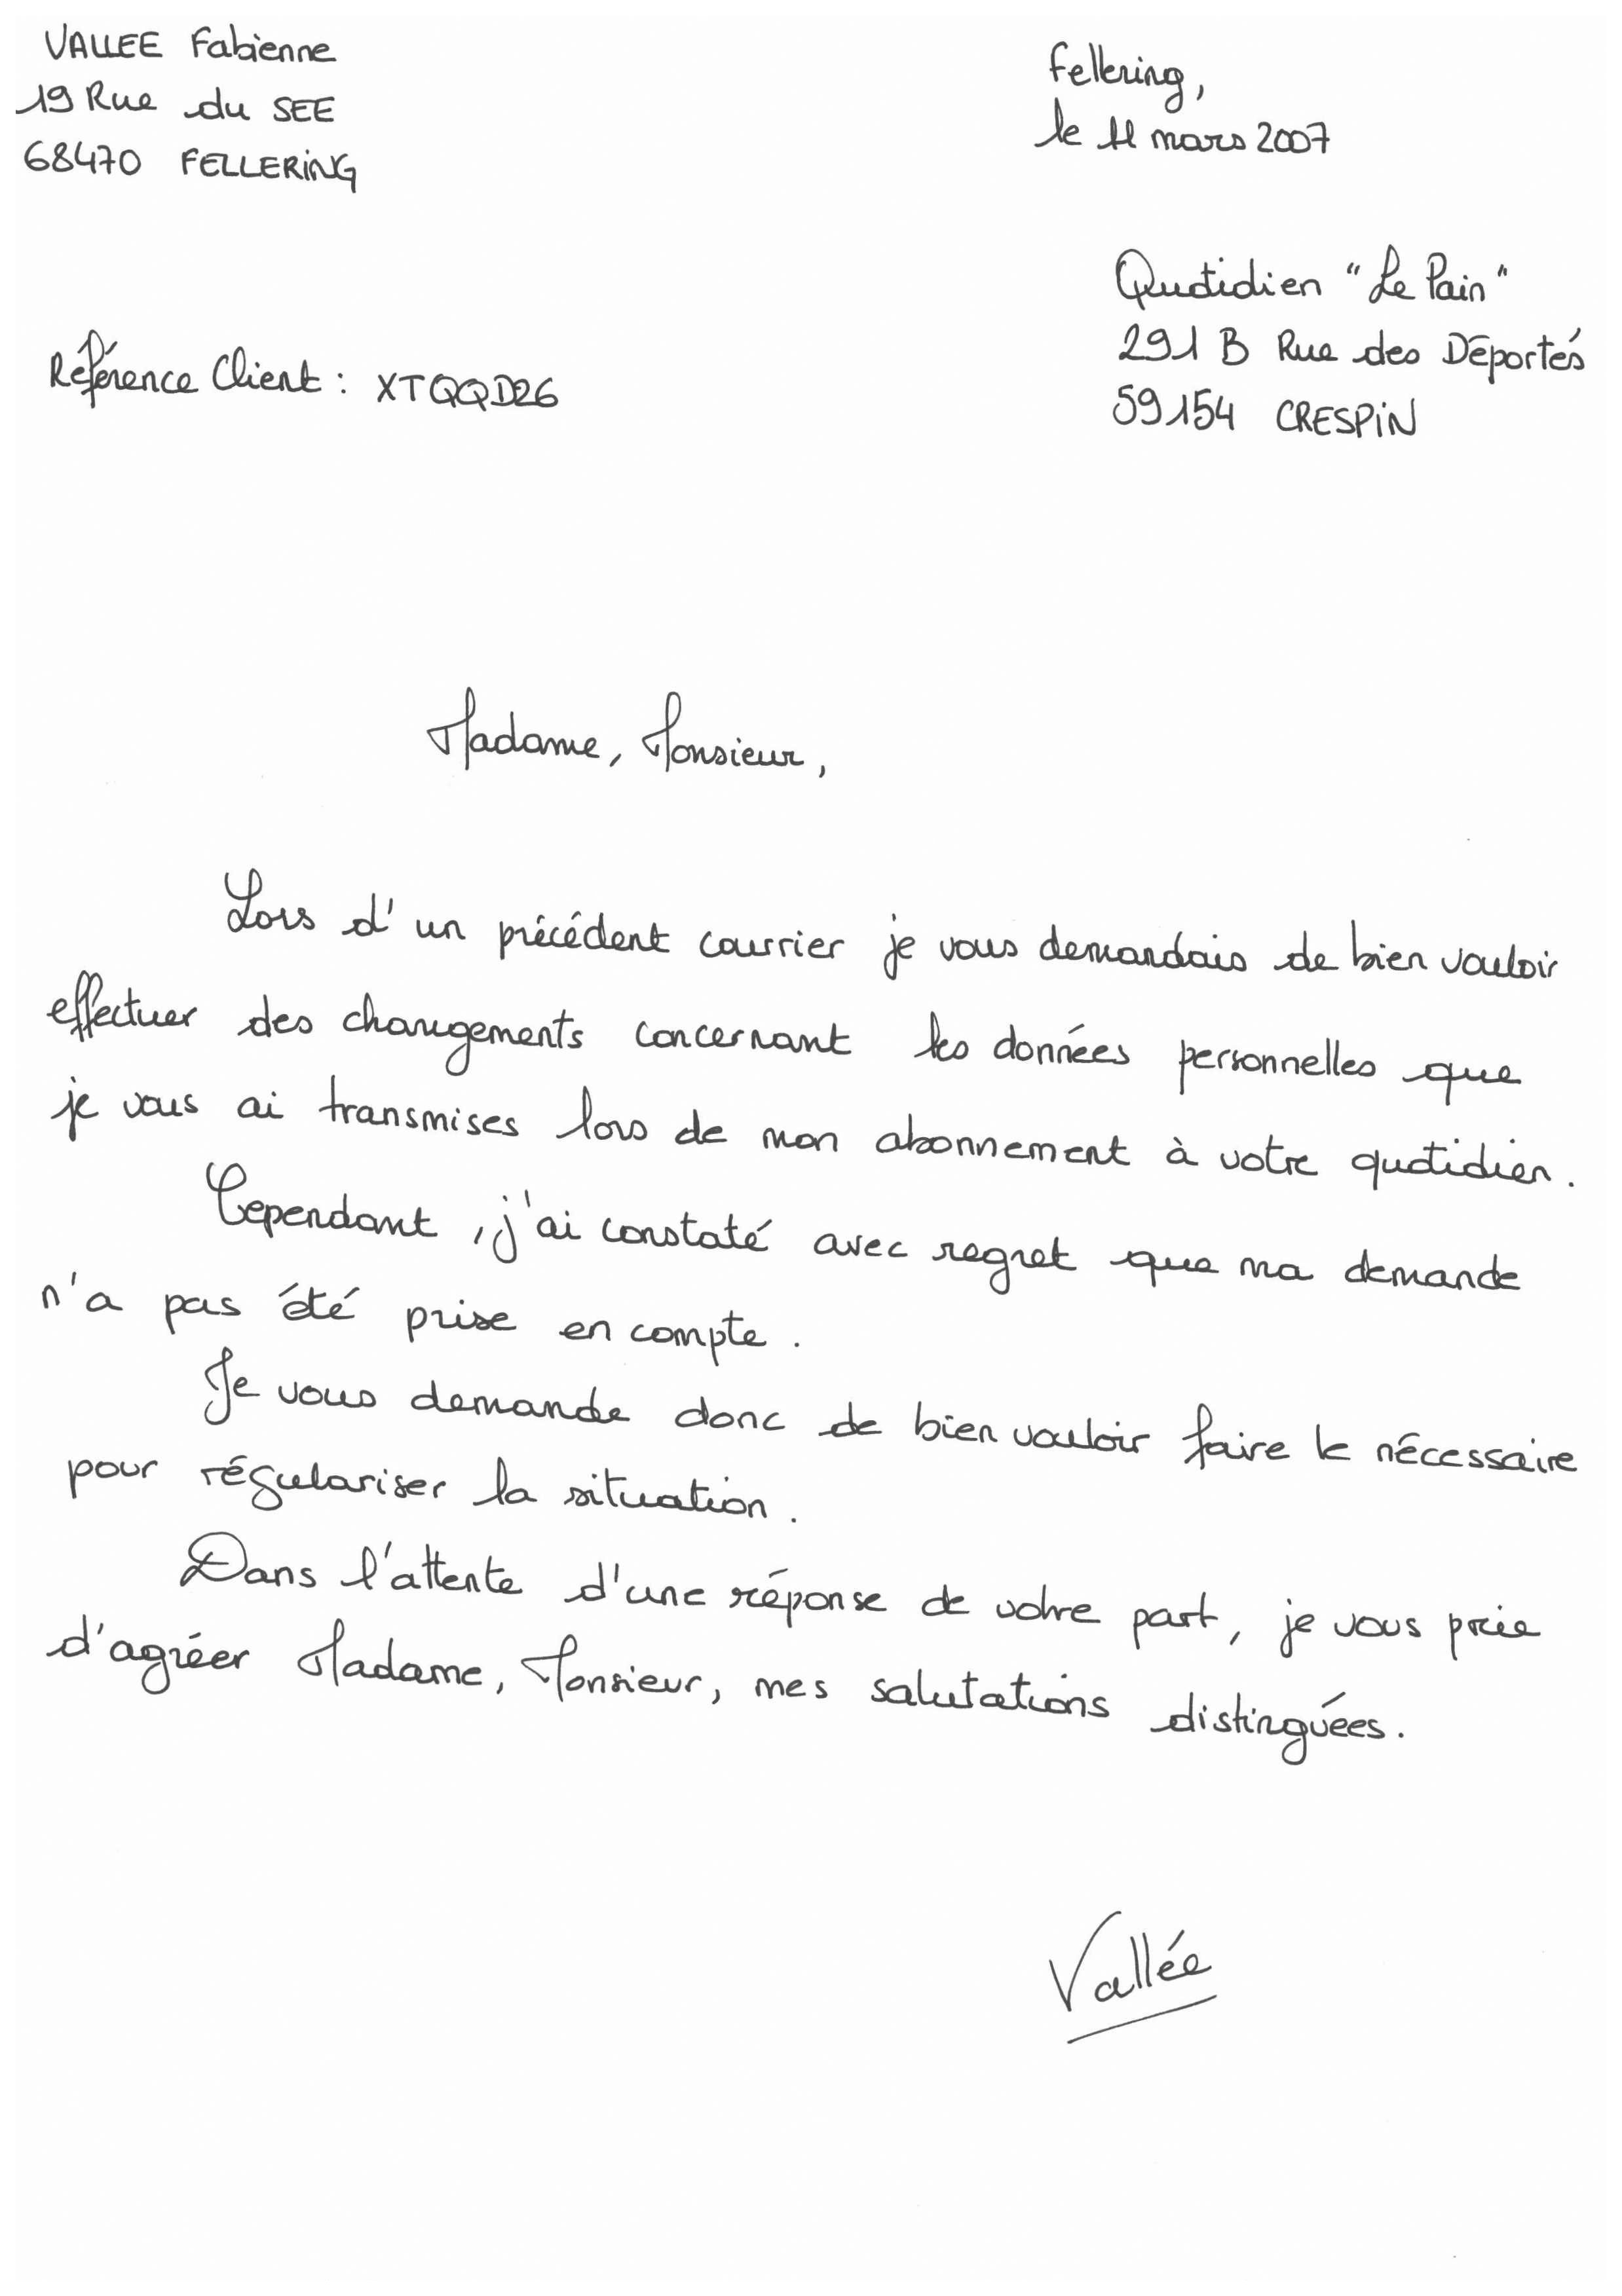 VALLEE Fabienne
19 Rue du SEE
68470 FELLERING
Fellering,
le 11 mars 2007
Quotidien "Le Pain"
291 B Rue des Déportés
59154 CRESPIN
Référence Client : XTQQD26
Madame, Monsieur,
Lors d'un précédent courrier je vous demandais de bien vouloir
effectuer des changements concernant les données personnelles que
je vous ai transmises lors de mon abonnement à votre quotidien.
Cependant, j'ai constaté avec regret que ma demande
n'a pas été prise en compte.
Je vous demande donc de bien vouloir faire le nécessaire
pour régulariser la situation.
Dans l'attente d'une réponse de votre part, je vous prie
d'agréer Madame, Monsieur, mes salutations distinguées.
Vallée